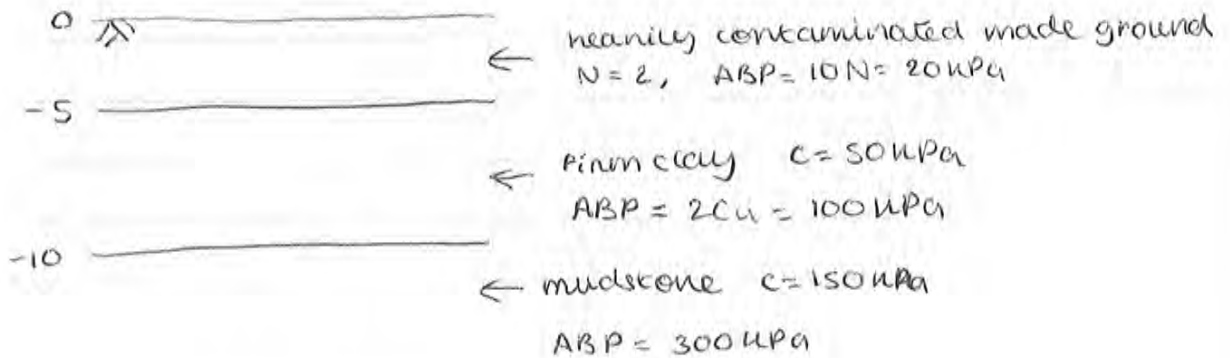 0
heavily contaminated made ground
N=2, ABP=10N=20kPa
-5
Firm clay C=50kPa
ABP = 2Cu = 100kPa
-10
mudstone C=150kPa
ABP = 300kPa